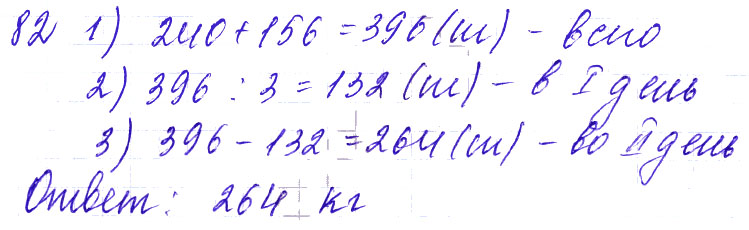 82 1) 240+156=396(т) - всего
2) 396 : 3 = 132 (т) - в I день
3) 396 - 132 = 264 (т) - во II день
Ответ: 264 кг